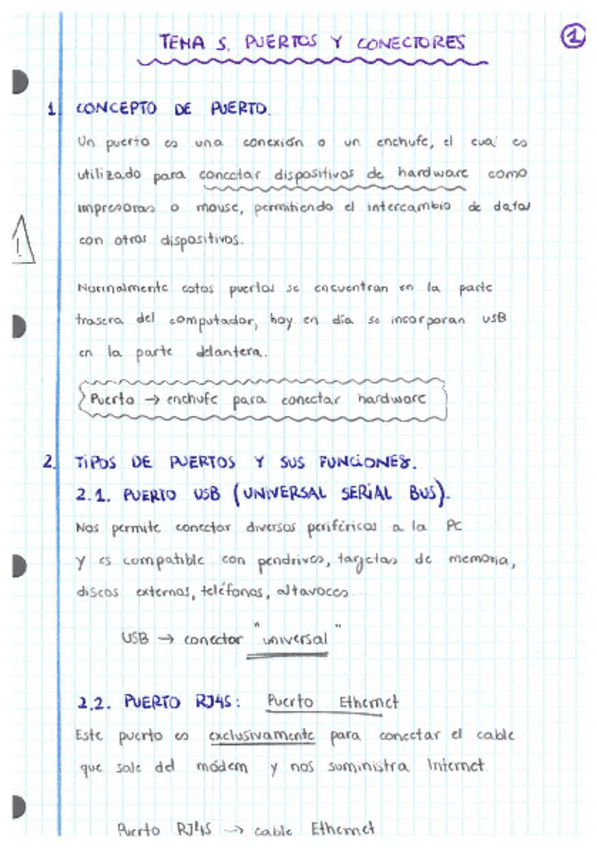 TEMA 5. PUERTOS Y CONECTORES
1
1. CONCEPTO DE PUERTO.
Un puerto es una conexión o un enchufe, el cual es
utilizado para conectar dispositivos de hardware como
impresoras o mouse, permitiendo el intercambio de datos
con otros dispositivos.
!
Normalmente estos puertos se encuentran en la parte
trasera del computador, hoy en día se incorporan USB
en la parte delantera.
Puerto → enchufe para conectar hardware
2. TIPOS DE PUERTOS Y SUS FUNCIONES.
2.1. PUERTO USB (UNIVERSAL SERIAL BUS).
Nos permite conectar diversos periféricos a la PC
y es compatible con pendrives, targetas de memoria,
discos externos, teléfonos, altavoces...
USB → conector "universal"
2.2. PUERTO RJ45: Puerto Ethernet
Este puerto es exclusivamente para conectar el cable
que sale del módem y nos suministra Internet
Puerto RJ45 → cable Ethernet